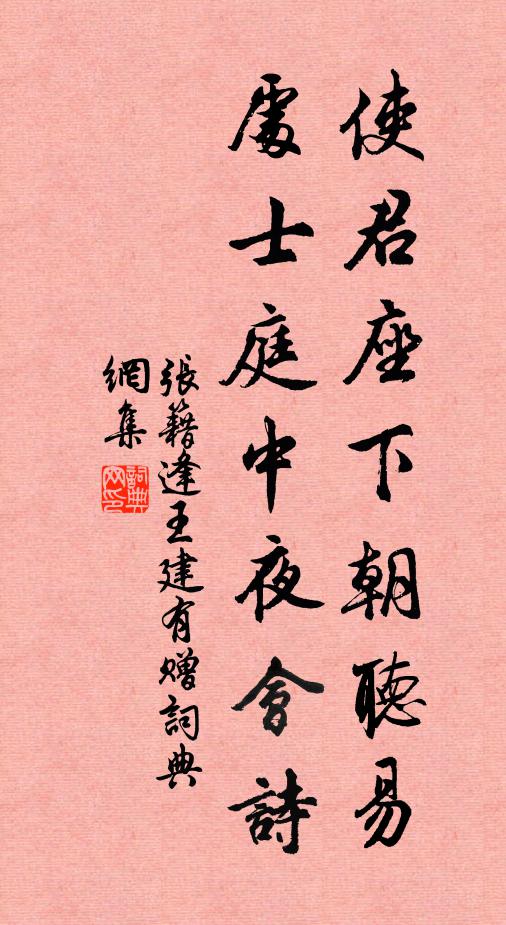 使君座下朝聽易
處士庭中夜會詩
張籍逢王建有贈詞典
網集
詞典
网印